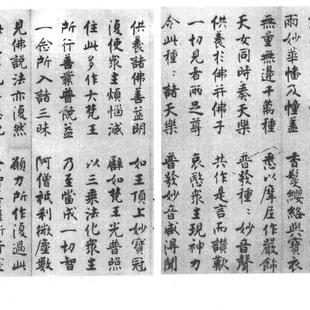 雨妙華幡及幢蓋　香鬘纓絡與寶衣
無量無邊千萬種　悉以摩尼作嚴飾
天女同時奏天樂　普發種〻妙音聲
供養於佛并佛子　共作是言而讚歎
一切見者兩足尊　哀愍衆生現神力
令此種〻諸天樂　普發妙音咸得聞
供養諸佛善益明　如王頂上妙寶冠
復使衆生煩惱滅　譬如梵王光普照
住此多作大梵王　以三乘法化衆生
所行善業普饒益　乃至當成一切智
一念所入諸三昧　阿僧祇刹微塵數
見佛說法亦復然　願力所作復過此